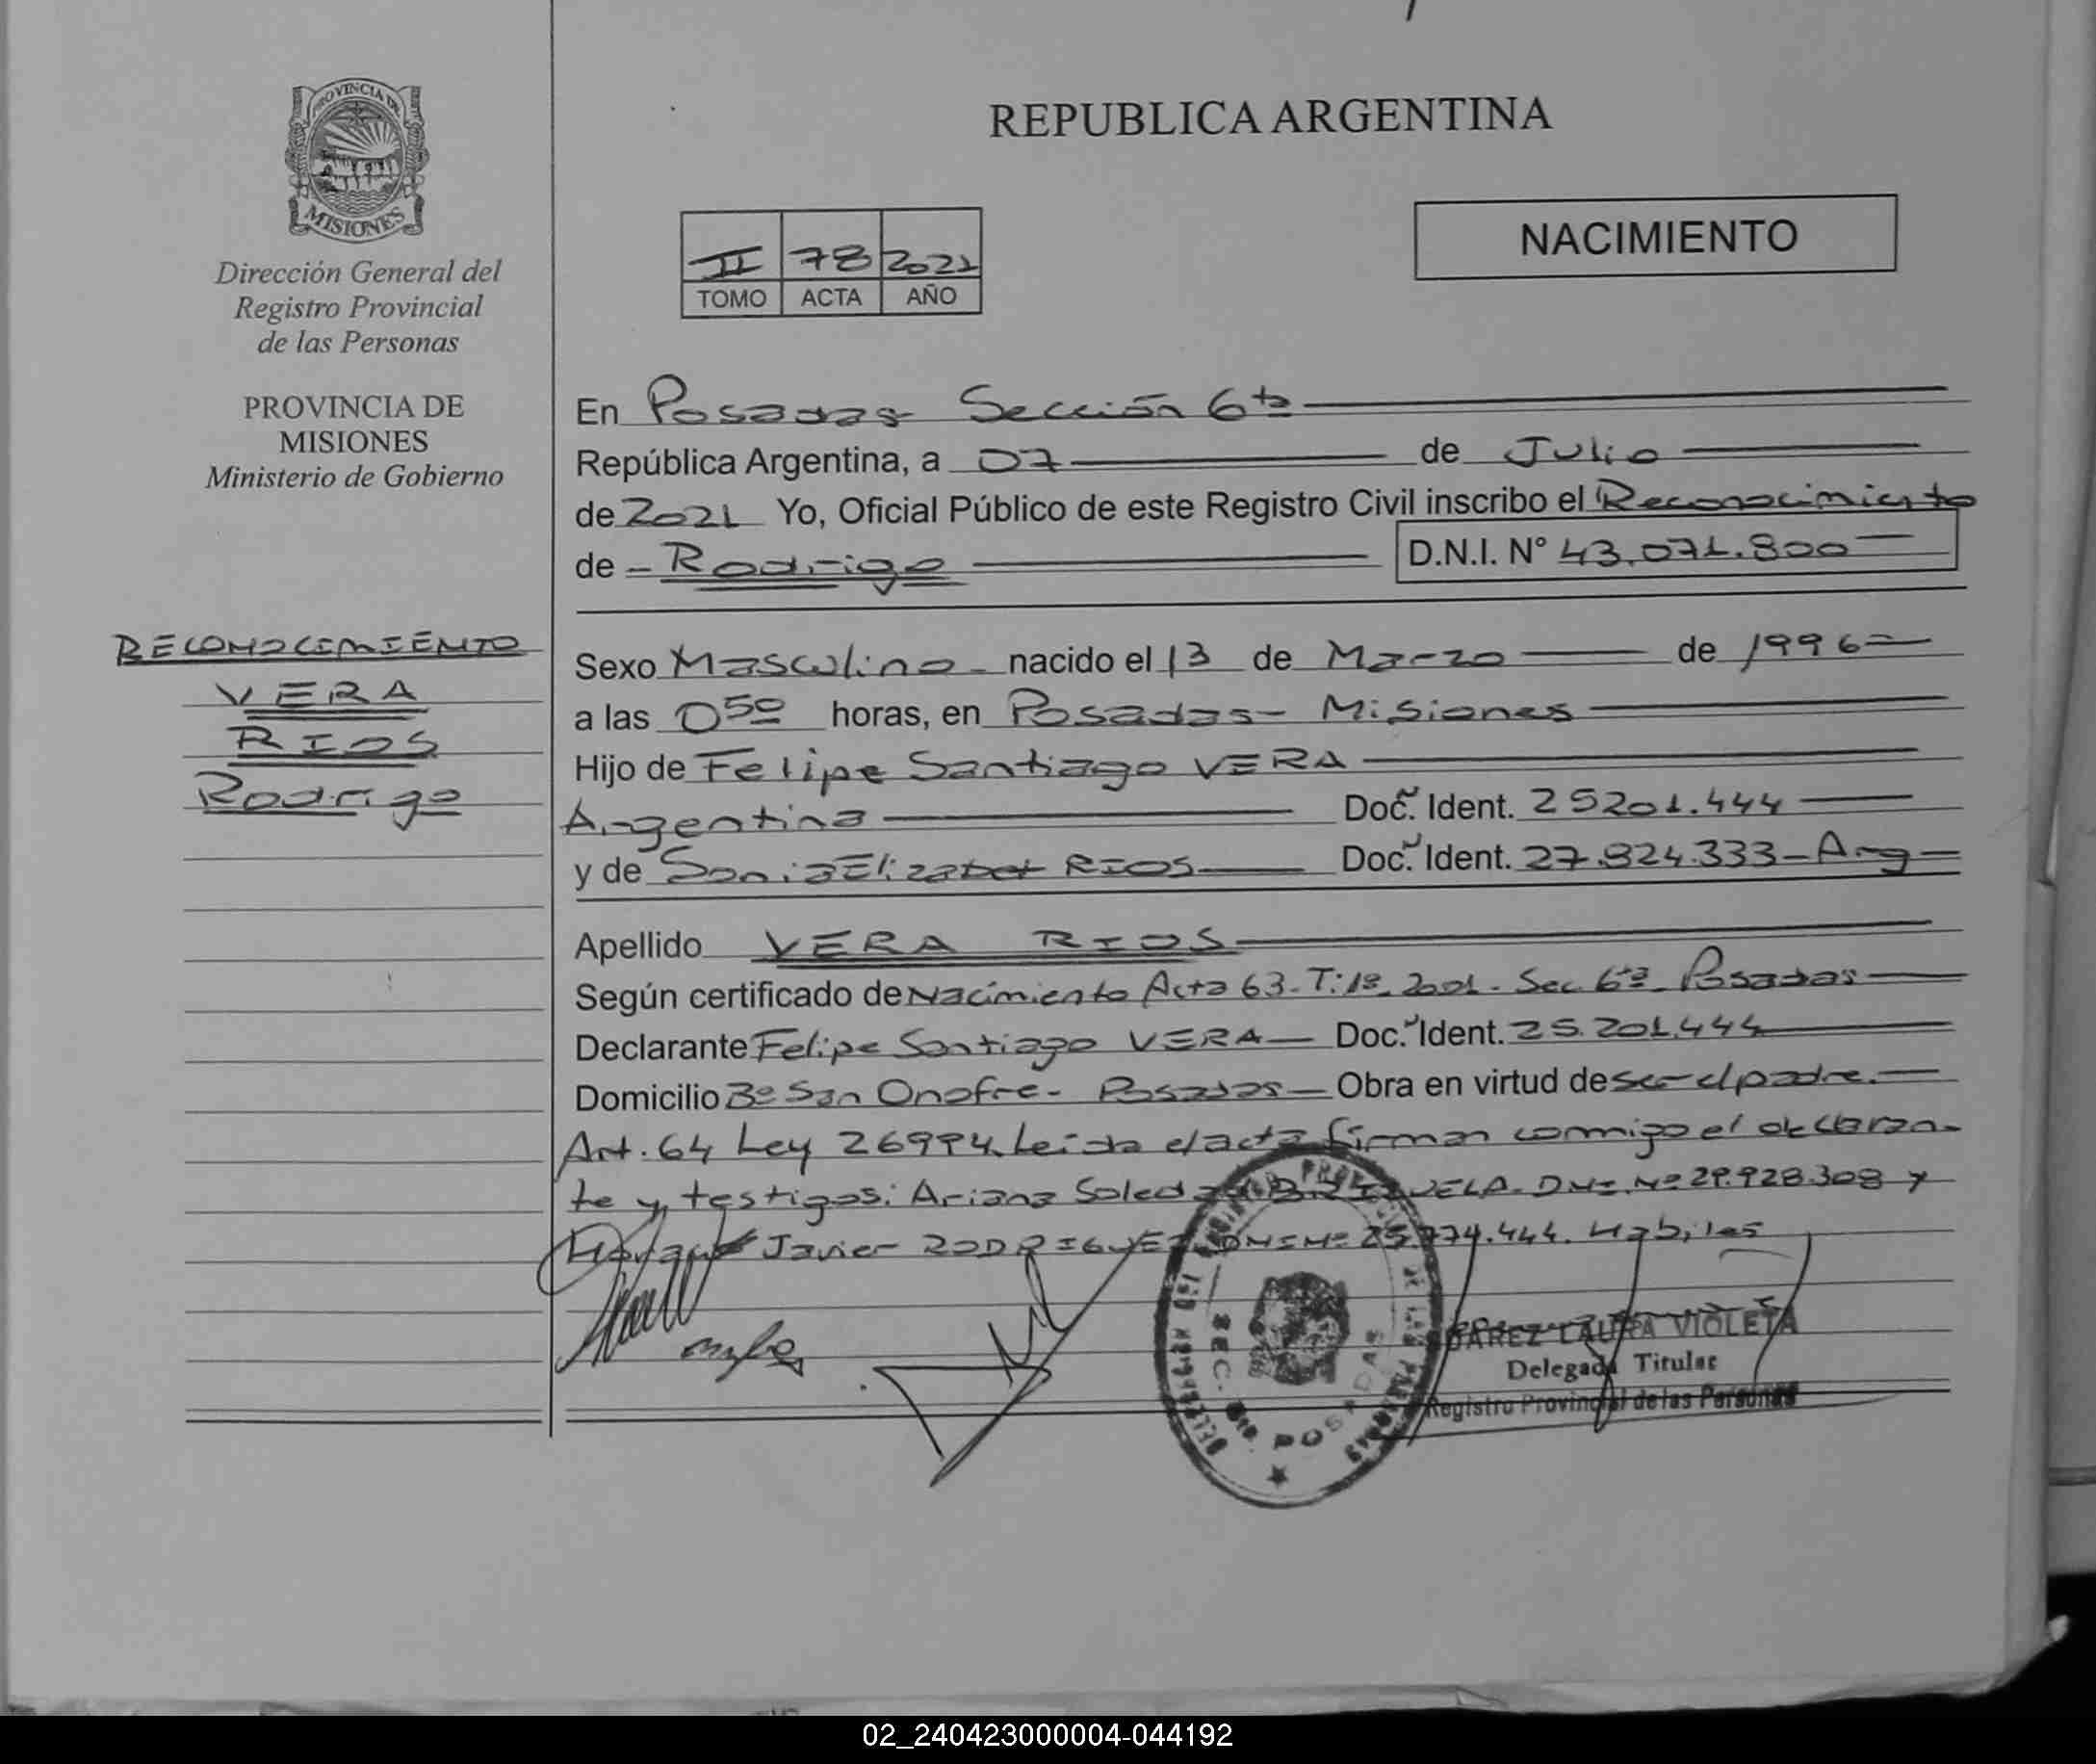 PROVINCIA DE
MISIONES
Dirección General del
Registro Provincial
de las Personas
PROVINCIA DE
MISIONES
Ministerio de Gobierno
RECONOCIMIENTO
VERA
RIOS
Rodrigo
REPUBLICA ARGENTINA
II 78 2021
TOMO ACTA AÑO
NACIMIENTO
En Posadas Sección 6ta
República Argentina, a 07 de Julio
de 2021 Yo, Oficial Público de este Registro Civil inscribo el Reconocimiento
de Rodrigo D.N.I. N° 43.071.800
Sexo Masculino nacido el 13 de Marzo de 1996
a las 050 horas, en Posadas - Misiones
Hijo de Felipe Santiago VERA
Argentina Doc. Ident. 25201.444
y de Sonia Elizabet RIOS Doc. Ident. 27.824.333 - Arg
Apellido VERA RIOS
Según certificado de Nacimiento Acta 63. T: 1º. 2001. Sec 6ta Posadas
Declarante Felipe Santiago VERA Doc. Ident. 25.201.444
Domicilio Bº San Onofre - Posadas Obra en virtud de ser el padre.
Art. 64 Ley 26994. Leida el acta firman conmigo el declaran-
te y testigos: Ariana Soledad DNI. Nº 29.928.308 y
Javier RODRIGUEZ DNI Nº .444. Habiles
SEC. POSADAS
LAURA VIOLETA
Delegada Titular
Registro Provincial de las Personas
02_240423000004-044192